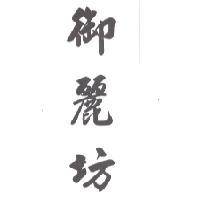 御麗坊